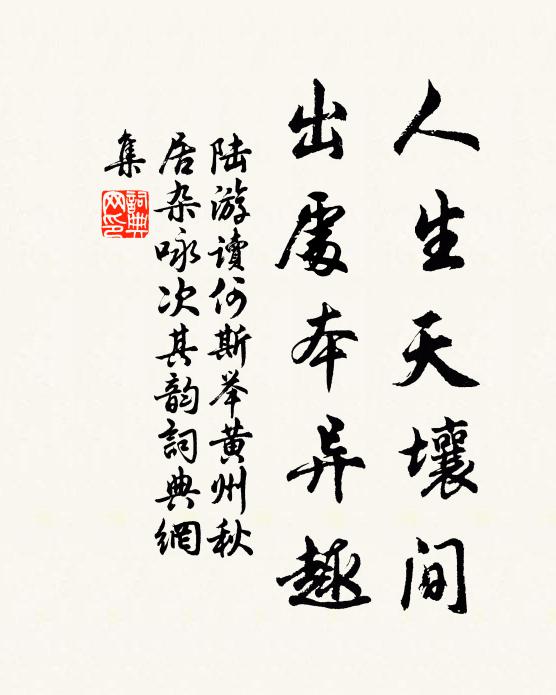 人生天壤间
出處本异趣
陆游讀何斯举黄州秋
居杂咏次其韵詞典網
集
詞典网印